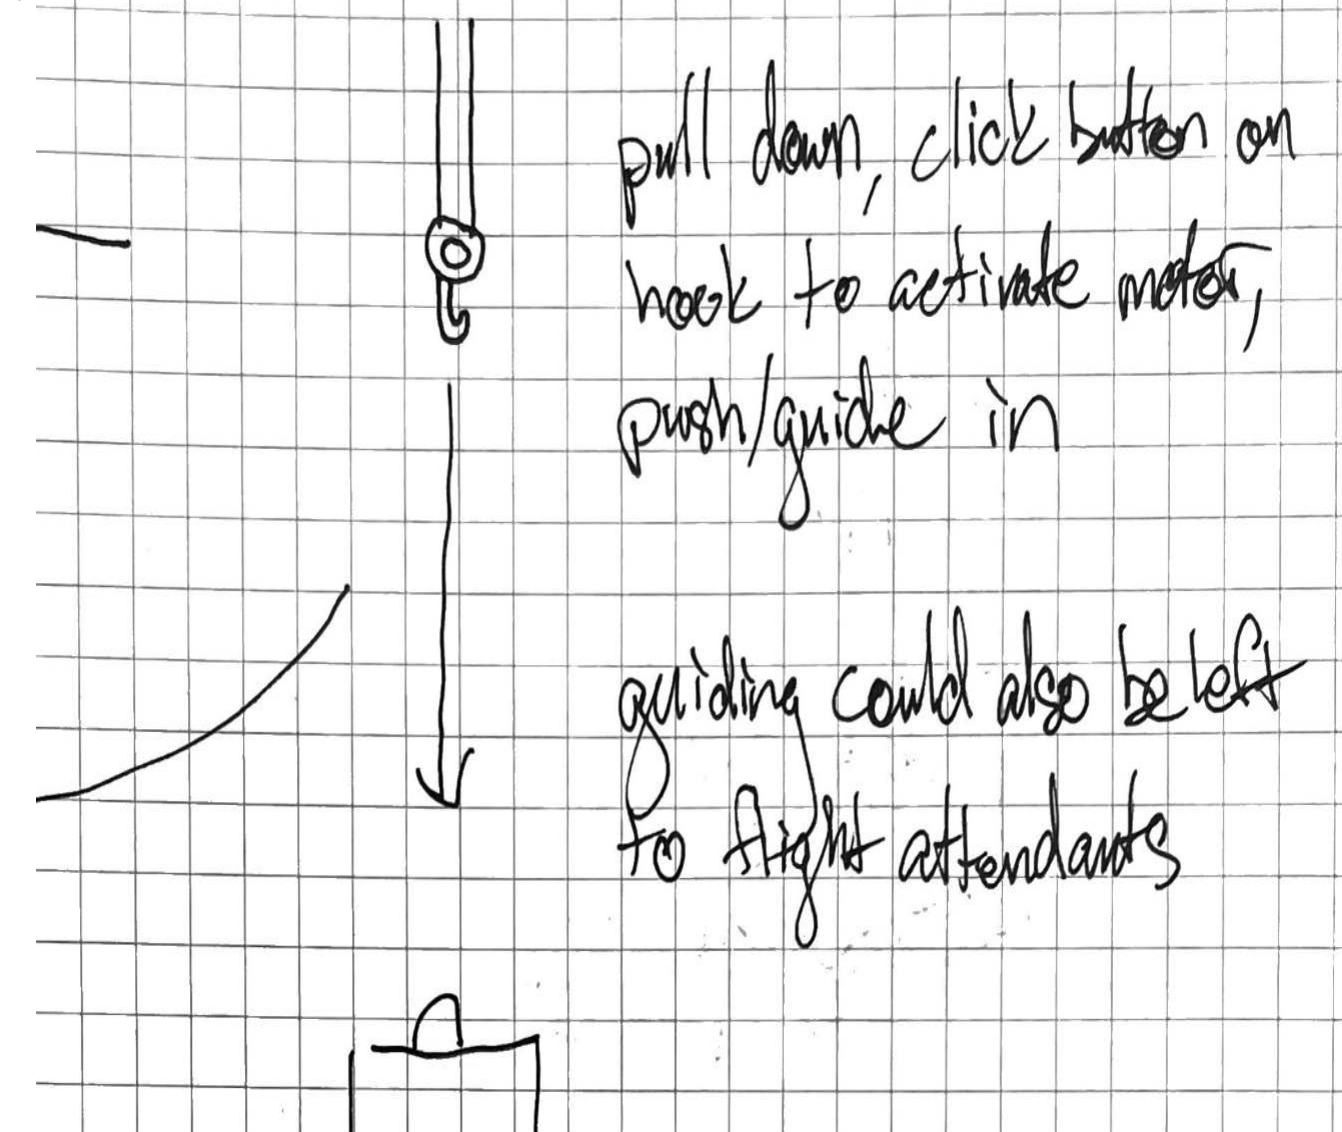 pull down, click button on
hook to activate motor,
push/guide in
guiding could also be left
to flight attendants